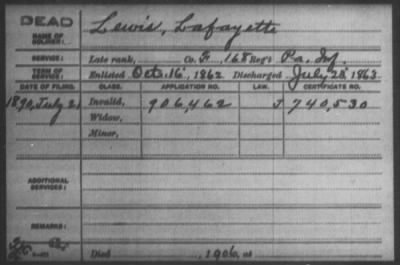 DEAD
NAME OF SOLDIER: Lewis, Lafayette
SERVICE: Late rank, Co. F, 168 Reg't Pa. Inf.
TERM OF SERVICE: Enlisted Oct. 16, 1862 Discharged July 28, 1863
DATE OF FILING. CLASS. APPLICATION NO. LAW. CERTIFICATE NO.
1890, July 21 Invalid, 906,462 J 740,530
Widow,
Minor,
ADDITIONAL SERVICES:
REMARKS:
Died , 1906, at